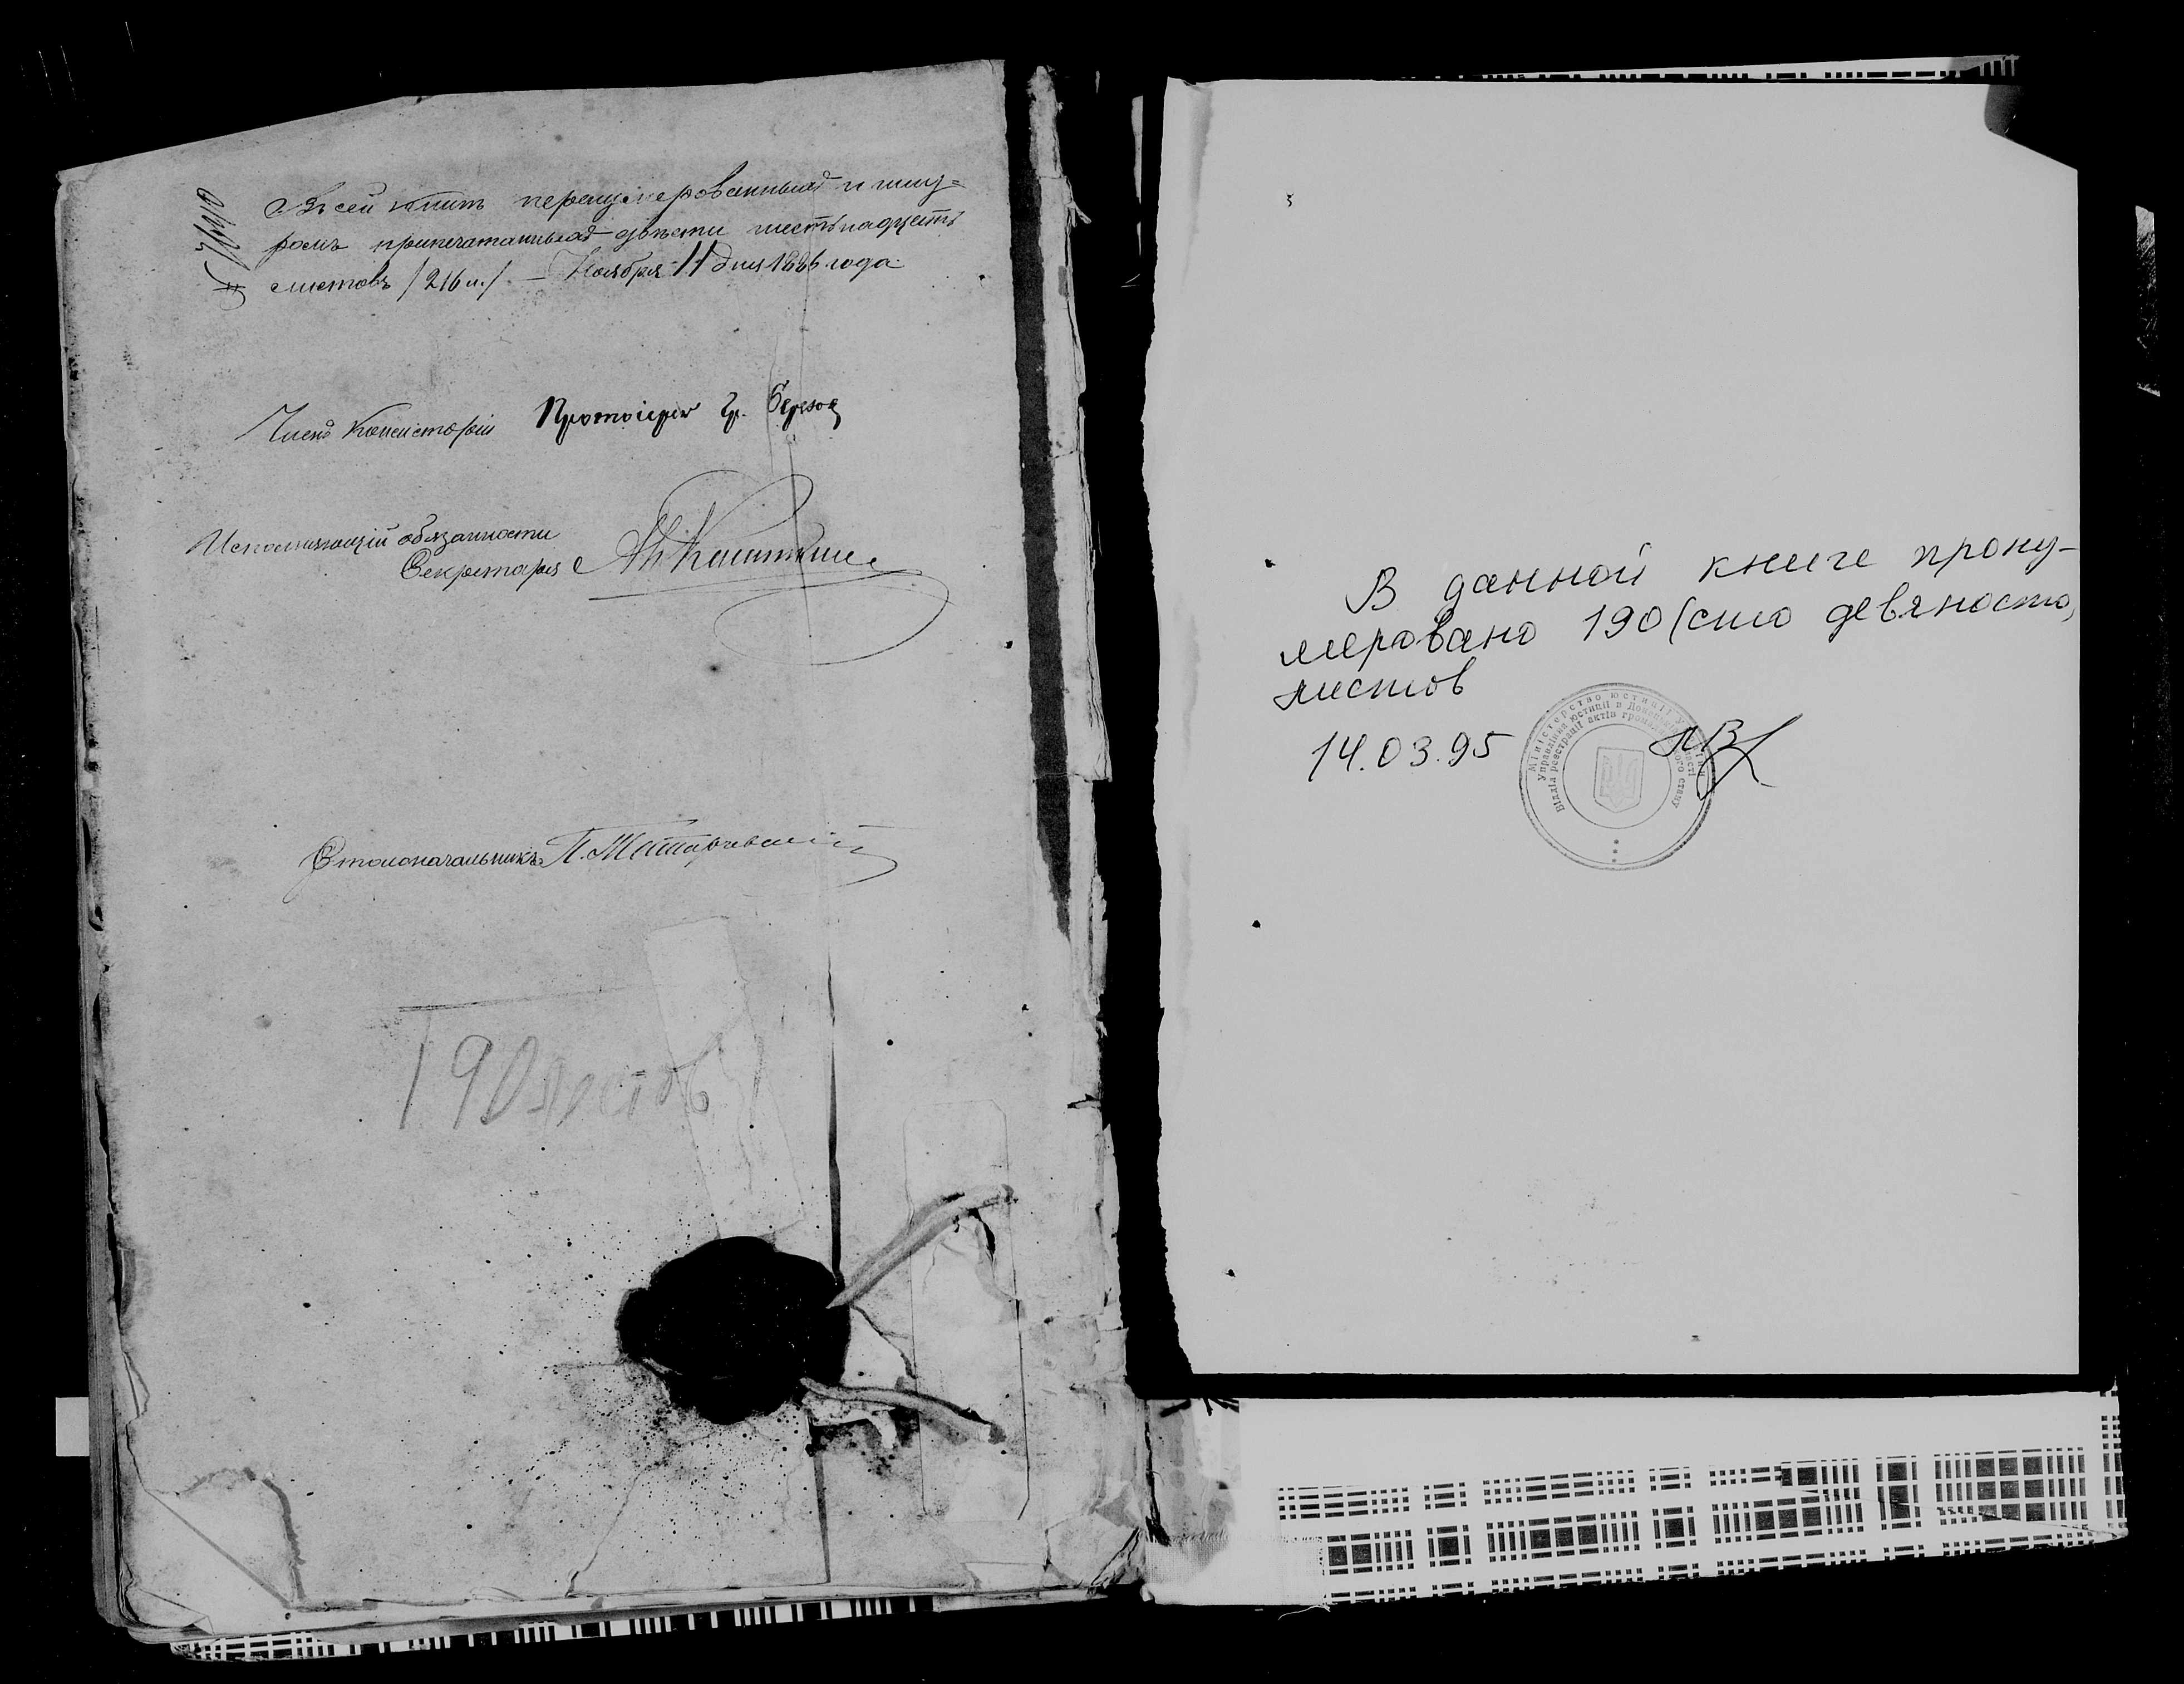 Въ сей книгѣ перенумерованныхъ и шну-
ромъ припечатанныхъ двѣсти шестьнадцать
листовъ /216 л./ – Ноября 11 дня 1886 года.
Членъ Консисторіи Протоіерей Гр.
Исполняющій обязанности
Секретаря
Столоначальникъ П.
190 листов
В данной книге прону-
меровано 190 (сто девяносто)
листов
14.03.95
Міністерство юстиції України
Управління юстиції в Донецькій області
Відділ реєстрації актів громадянського стану